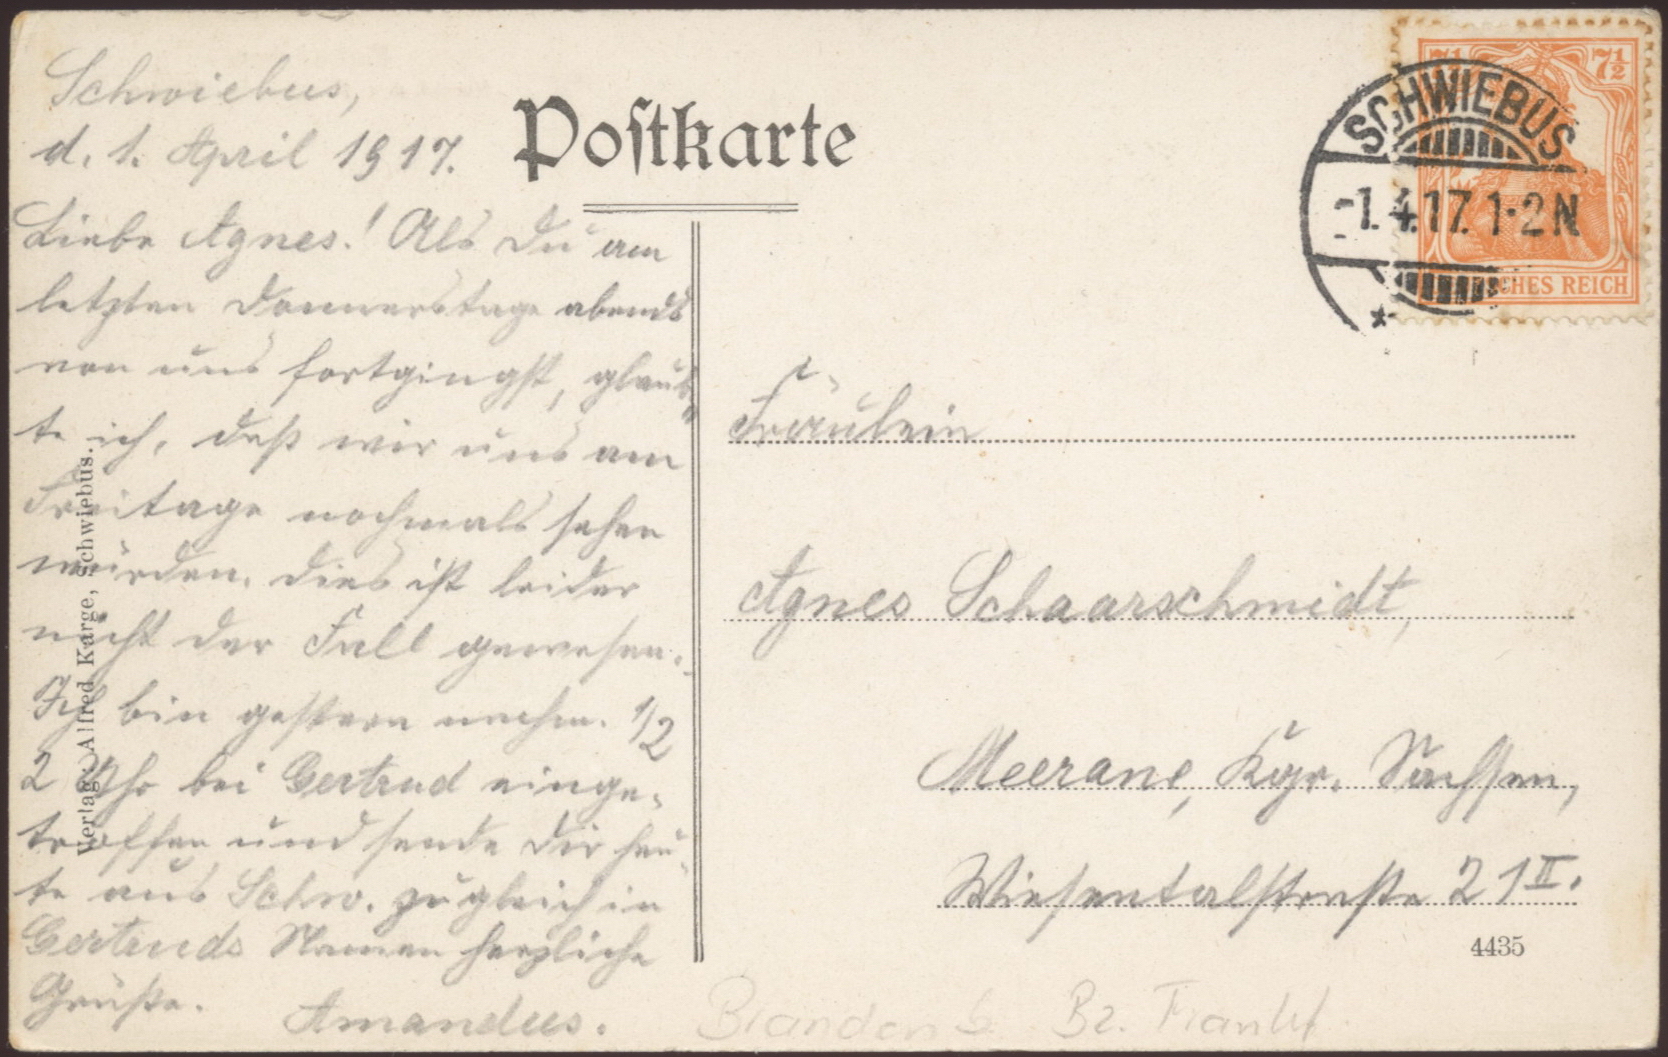 Schwiebus,
d. 1. April 1917.
Liebe Agnes! Als Du am
letzten Donnerstage abends
von uns fortgingst, glaub-
te ich, daß wir uns am
Freitage nochmals sehen
würden. Dies ist leider
nicht der Fall gewesen.
Ich bin gestern nachm. 1/2
2 Uhr bei Gertrud einge-
troffen und sende Dir heu-
te aus Schw. zugleich in
Gertruds Namen herzliche
Grüße.
Amandus.
Verlag: Alfred Karge, Schwiebus.
Postkarte
7½ 7½
SCHWIEBUS
-1.4.17.1-2N
*
CHES REICH
Fräulein
Agnes Schaarschmidt,
Meerane, Kgr. Sachsen,
Wiesentalstraße 21 II.
4435
Brandenb. Bz. Frankf